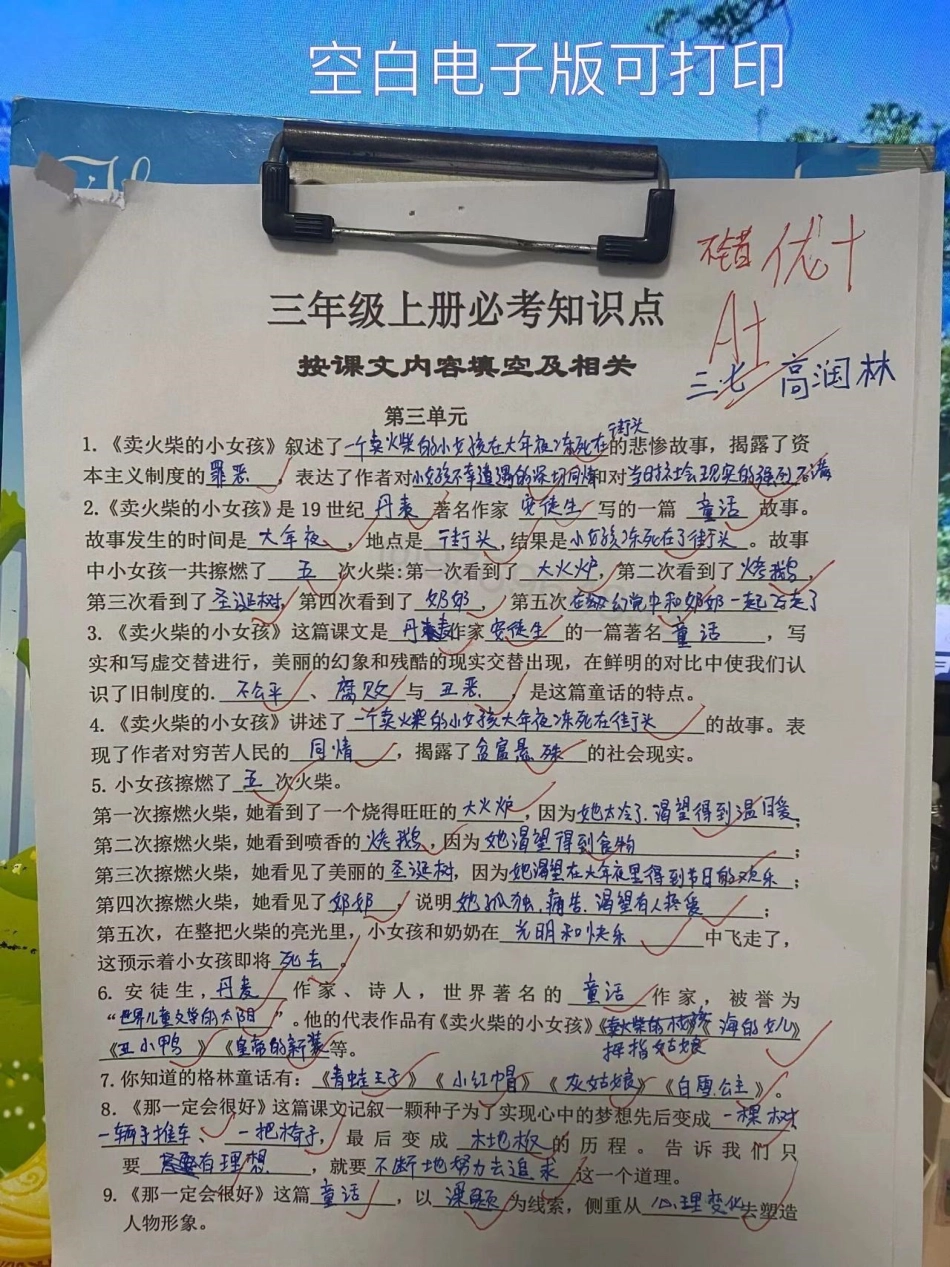 空白电子版可打印
不错 优十
三年级上册必考知识点
A+
按课文内容填空及相关
三七 高润林
第三单元
街头
1.《卖火柴的小女孩》叙述了一个卖火柴的小女孩在大年夜冻死在的悲惨故事，揭露了资
本主义制度的罪恶，表达了作者对小女孩不幸遭遇的深切同情和对当时社会现实的强烈不满
2.《卖火柴的小女孩》是 19 世纪 丹麦 著名作家 安徒生 写的一篇 童话 故事。
故事发生的时间是 大年夜 ，地点是 街头，结果是小女孩冻死在了街头。故事
中小女孩一共擦燃了 五 次火柴:第一次看到了 大火炉，第二次看到了 烤鹅，
第三次看到了 圣诞树，第四次看到了 奶奶 ， 第五次在幻觉中和奶奶一起飞走了
3. 《卖火柴的小女孩》这篇课文是 丹麦 作家 安徒生 的一篇著名 童话 ，写
实和写虚交替进行，美丽的幻象和残酷的现实交替出现，在鲜明的对比中使我们认
识了旧制度的. 不公平 、 腐败 与 丑恶 ，是这篇童话的特点。
4. 《卖火柴的小女孩》讲述了 一个卖火柴的小女孩大年夜冻死在街头 的故事。表
现了作者对穷苦人民的 同情 ，揭露了 贫富悬殊 的社会现实。
5. 小女孩擦燃了 五 次火柴。
第一次擦燃火柴，她看到了一个烧得旺旺的 大火炉 ，因为她太冷了.渴望得到温暖；
第二次擦燃火柴，她看到喷香的 烤鹅，因为 她渴望得到食物 ；
第三次擦燃火柴，她看见了美丽的 圣诞树，因为她渴望在大年夜里得到节日的欢乐；
第四次擦燃火柴，她看见了 奶奶 ，说明 她孤独.痛苦.渴望有人疼爱 ；
第五次，在整把火柴的亮光里，小女孩和奶奶在 光明和快乐 中飞走了，
这预示着小女孩即将 死去 。
6. 安徒生，丹麦 作家、诗人，世界著名的 童话 作家，被誉为
“世界儿童文学的太阳”。他的代表作品有《卖火柴的小女孩》《》《海的女儿》
拇指姑娘
《丑小鸭》《皇帝的新装等。
7. 你知道的格林童话有：《青蛙王子》《小红帽》《灰姑娘》《白雪公主》。
8. 《那一定会很好》这篇课文记叙一颗种子为了实现心中的梦想先后变成 一棵树
一辆手推车、一把椅子，最后变成 木地板 的历程。告诉我们只
要 有理想 ，就要 不断地努力去追求 这一个道理。
9. 《那一定会很好》这篇 童话 ，以 为线索，侧重从 心理变化 去塑造
人物形象。